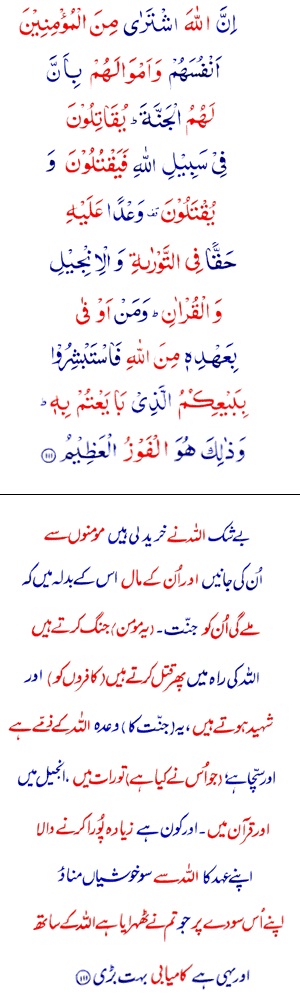 اِنَّ اللّٰهَ اشْتَرٰى مِنَ الْمُؤْمِنِيْنَ
اَنْفُسَهُمْ وَاَمْوَالَهُمْ بِاَنَّ
لَهُمُ الْجَنَّةَ ؕ يُقَاتِلُوْنَ
فِيْ سَبِيْلِ اللّٰهِ فَيَقْتُلُوْنَ وَ
يُقْتَلُوْنَ ۫ وَعْدًا عَلَيْهِ
حَقًّا فِى التَّوْرٰىةِ وَالْاِنْجِيْلِ
وَالْقُرْاٰنِ ؕ وَمَنْ اَوْفٰى
بِعَهْدِهٖ مِنَ اللّٰهِ فَاسْتَبْشِرُوْا
بِبَيْعِكُمُ الَّذِيْ بَايَعْتُمْ بِهٖ ؕ
وَذٰلِكَ هُوَ الْفَوْزُ الْعَظِيْمُ ﴿۱۱۱﴾
بے شک اللہ نے خرید لی ہیں مومنوں سے
اُن کی جانیں اور اُن کے مال اس کے بدلہ میں کہ
ملے گی اُن کو جنّت۔ (یہ مومن) جنگ کرتے ہیں
اللہ کی راہ میں پھر قتل کرتے ہیں (کافروں کو) اور
شہید ہوتے ہیں، یہ (جنّت کا) وعدہ اللہ کے ذمّے ہے
اور سچّا ہے (جو اُس نے کیا ہے) تورات میں، انجیل میں
اور قرآن میں۔ اور کون ہے زیادہ پُورا کرنے والا
اپنے عہد کا اللہ سے سو خوشیاں مناؤ
اپنے اُس سودے پر جو تم نے ٹھہرایا ہے اللہ کے ساتھ
اور یہی ہے کامیابی بہت بڑی ﴿۱۱۱﴾